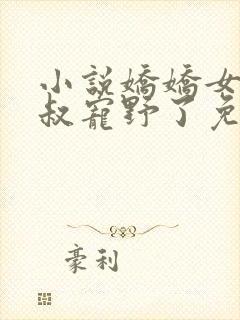 小說嬌嬌女
叔寵野了免
豪利